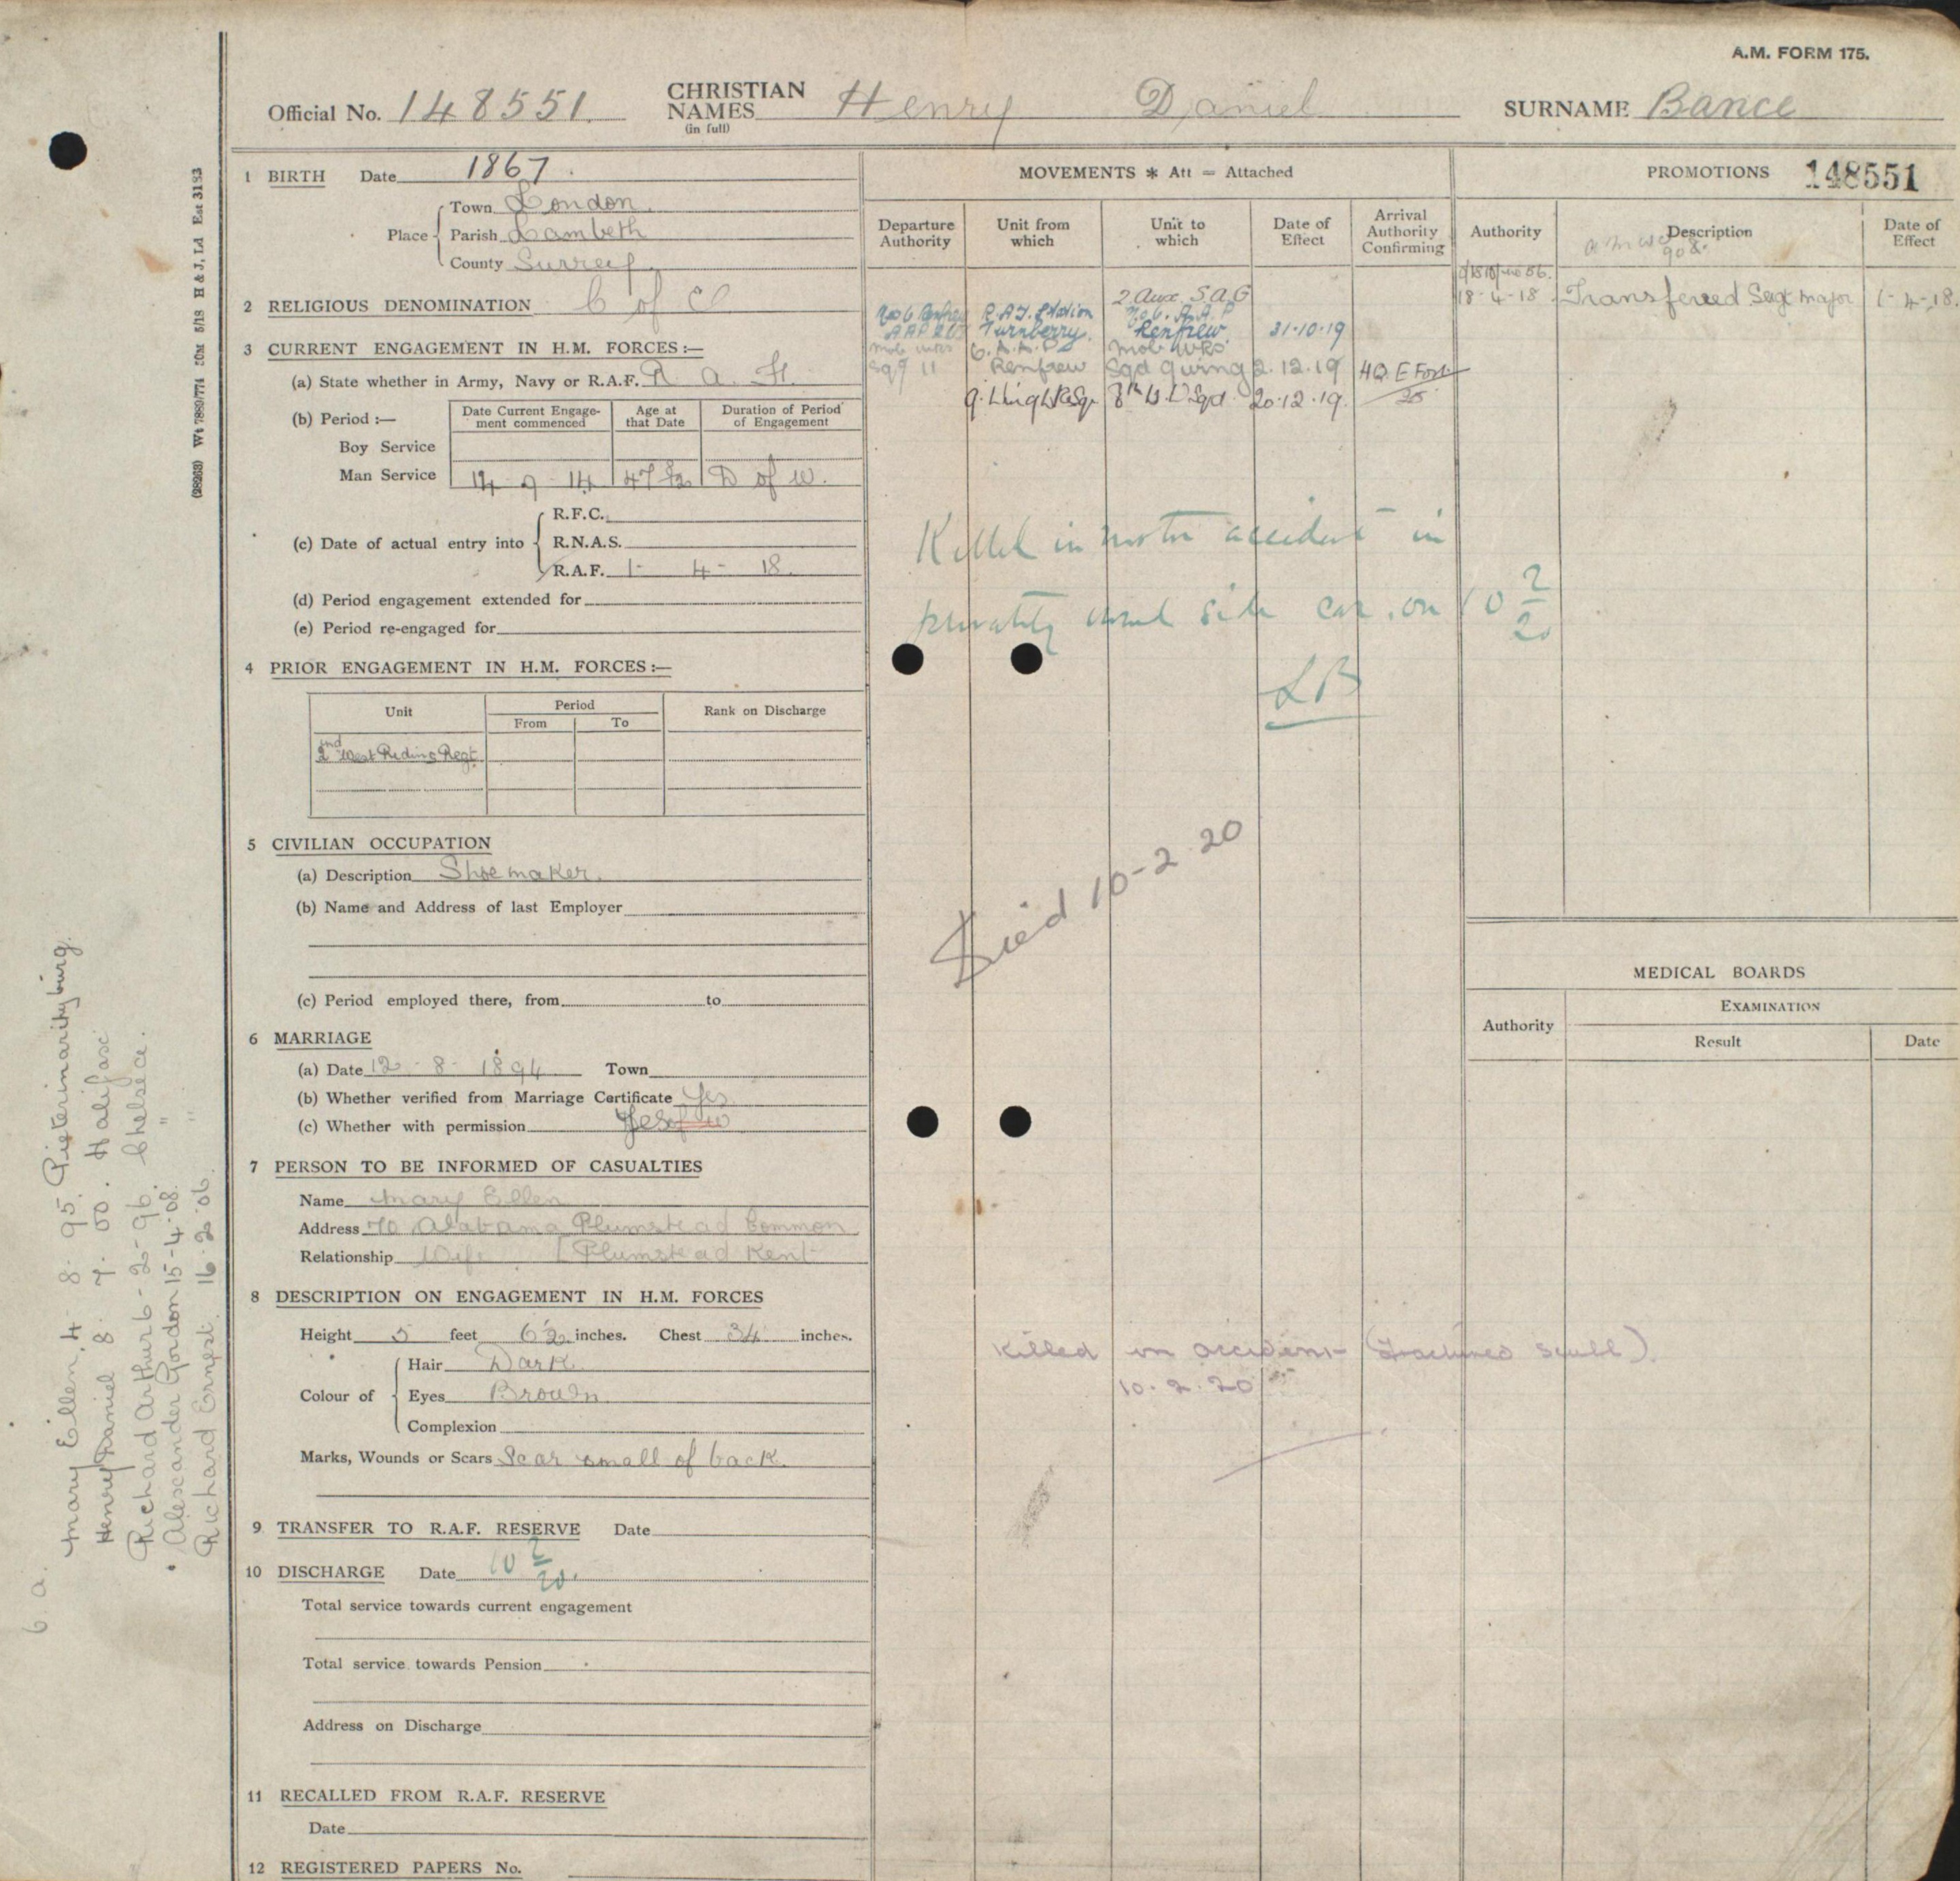 A.M. FORM 175.
Official No. 148551. CHRISTIAN NAMES (in full) Henry Daniel SURNAME Bance
(28938) Wt 7889/774 50M 5/18 H & J, Ld
1 BIRTH Date 1867.
Place Town London
Parish Lambeth
County Surrey
2 RELIGIOUS DENOMINATION C of E
3 CURRENT ENGAGEMENT IN H.M. FORCES :—
(a) State whether in Army, Navy or R.A.F. R. a. F.
(b) Period :— Date Current Engage- ment commenced Age at that Date Duration of Period of Engagement
Boy Service
Man Service 14 9 14 47 D of W.
(c) Date of actual entry into R.F.C.
R.N.A.S.
R.A.F. 1- 4- 18.
(d) Period engagement extended for
(e) Period re-engaged for
4 PRIOR ENGAGEMENT IN H.M. FORCES :—
Unit Period Rank on Discharge
From To
2nd West Riding Regt.
5 CIVILIAN OCCUPATION
(a) Description Shoemaker.
(b) Name and Address of last Employer
(c) Period employed there, from to
6 MARRIAGE
(a) Date 12 - 8 - 1894 Town
(b) Whether verified from Marriage Certificate Yes
(c) Whether with permission Yes
7 PERSON TO BE INFORMED OF CASUALTIES
Name Mary Ellen
Address 70 Alabama Plumstead Common
Relationship Wife Plumstead Kent
8 DESCRIPTION ON ENGAGEMENT IN H.M. FORCES
Height 5 feet 6½ inches. Chest 34 inches.
Colour of Hair Dark
Eyes Brown
Complexion
Marks, Wounds or Scars Scar small of back.
9 TRANSFER TO R.A.F. RESERVE Date
10 DISCHARGE Date 10 2/20.
Total service towards current engagement
Total service towards Pension
Address on Discharge
11 RECALLED FROM R.A.F. RESERVE
Date
12 REGISTERED PAPERS No.
MOVEMENTS * Att = Attached
Departure Authority Unit from which Unit to which Date of Effect Arrival Authority Confirming
2 Aux. S.A.G
Station
Turnberry. Renfrew. 31·10·19
Renfrew 2.12.19
20.12.19.
Killed in motor accident in
privately owned side car, on 10 2/20
LB
Died 10-2 20
Killed in accident (Fractured Scull).
10. 2. 20
PROMOTIONS 148551
Authority Description Date of Effect
18-4-18 Transferred Sergt Major 1-4-18.
MEDICAL BOARDS
Authority EXAMINATION
Result Date
6 a.
Mary Ellen, 4 8. 95. Pietermaritzburg.
Henry Daniel 8 7. 00. Halifax
Richard Arthur 6-2-96. Chelsea.
Alexander Gordon 15-4-08. "
Richard Ernest. 16.2.06. "